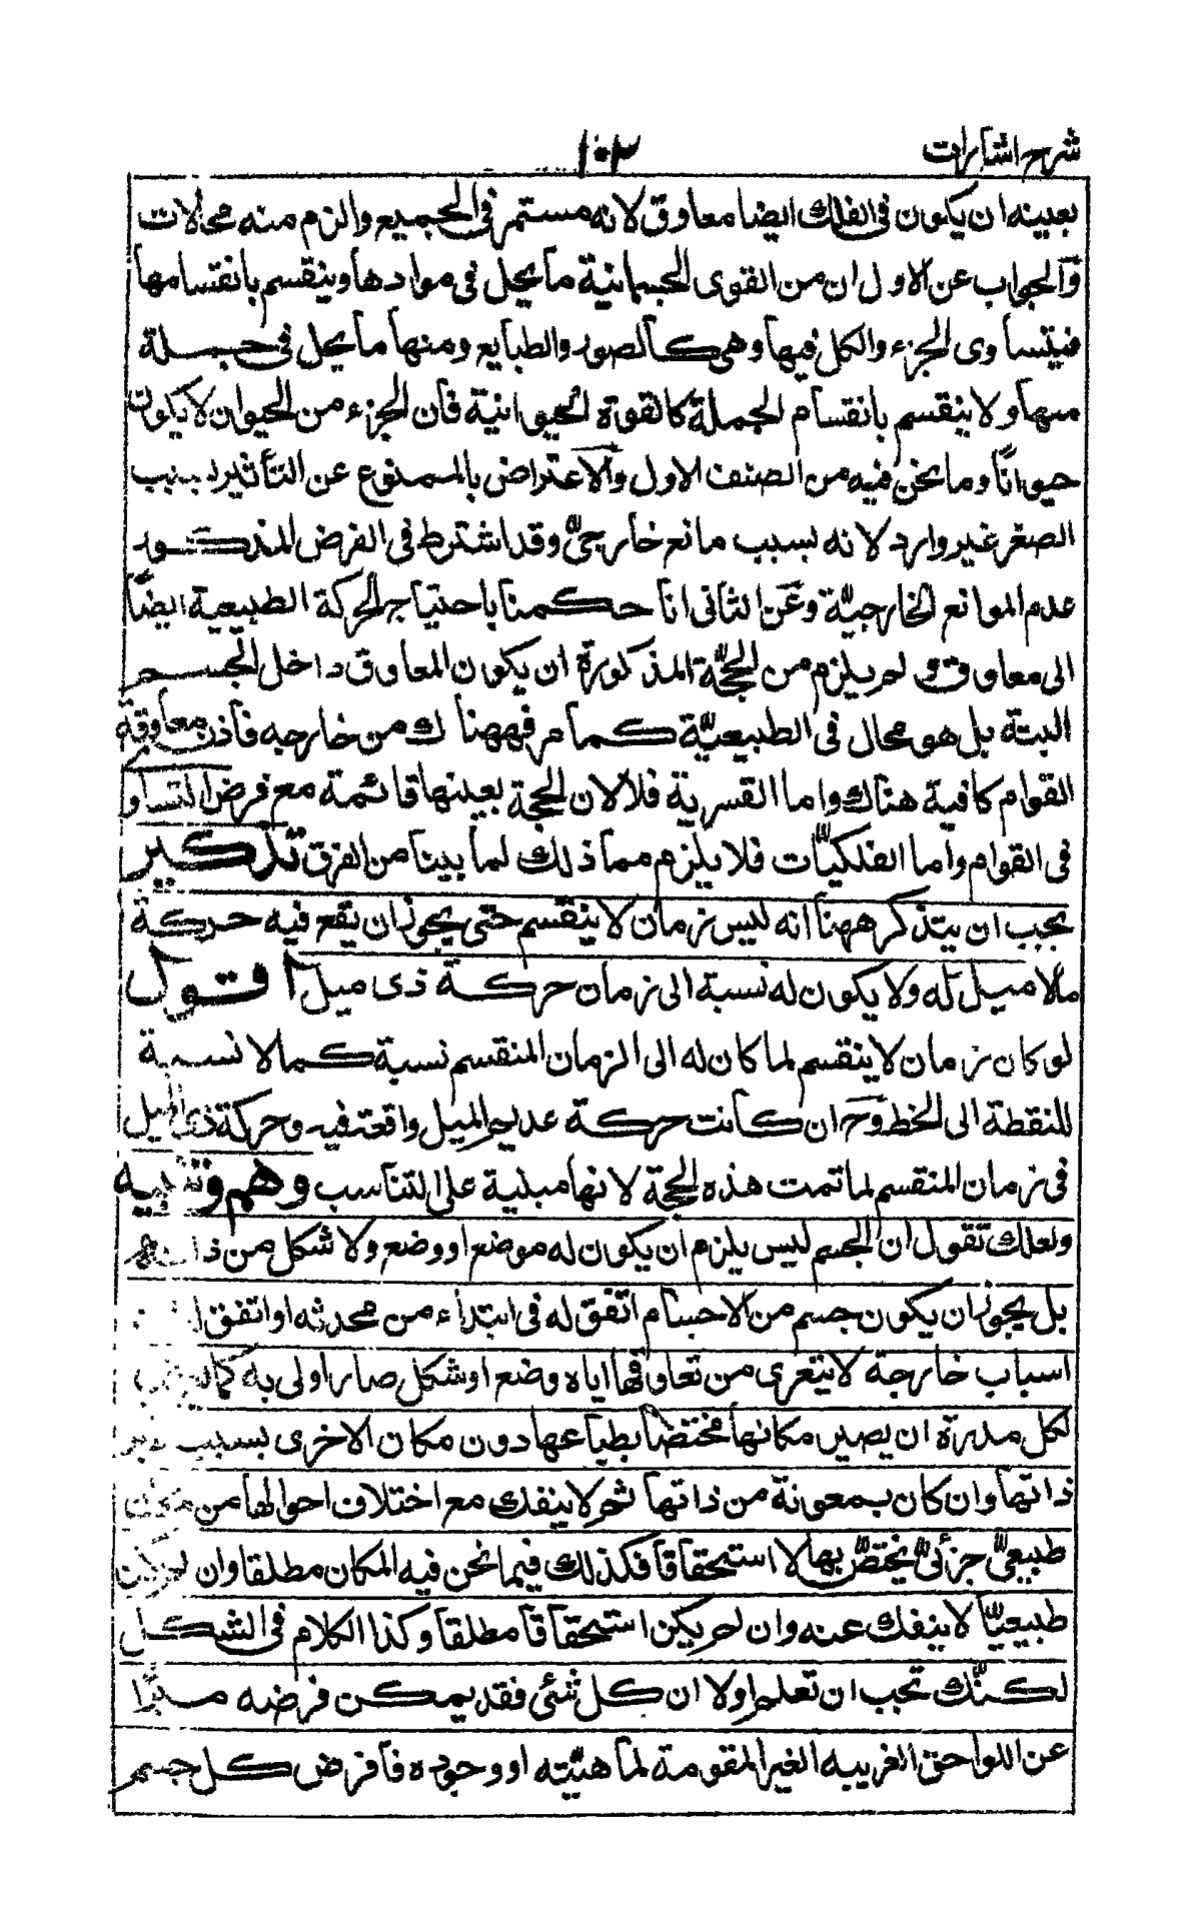 شرح اشارات
١٠٢
بعينه ان يكون فى الفلك ايضا معاوق لانه مستمر فى الجميع والزم منه محالات
وَالجواب عن الاول ان من القوى الجسمانية ما يحل فى موادها وينقسم بانقسامها
فيتساوى الجزء والكل فيها وهى كالصور والطبايع ومنها ما يحل فى جملة
منها ولا ينقسم بانقسام الجملة كالقوة الحيوانية فان الجزء من الحيوان لا يكون
حيوانًا وما نحن فيه من الصنف الاول وَالاعتراض بالممنوع عن التأثير بسبب
الصغر غير وارد لانه بسبب مانع خارجىّ وقد اشترط فى الفرض المذكور
عدم الموانع الخارجيّة وعَن الثانى انا حكمنا باحتياج الحركة الطبيعية ايضًا
الى معاوق و لم يلزم من الحجّة المذكورة ان يكون المعاوق داخل الجسم
البتة بل هو محال فى الطبيعيّة كما مر فههنا لك من خارجه فاذن معاوقة
القوام كافية هناك واما القسرية فلا لان الحجة بعينها قائمة مع فرض التساو
فى القوام واما الفلكيّات فلا يلزم مما ذلك لما بينا من الفرق تذكير
يجب ان يتذكر ههنا انه ليس زمان لا ينقسم حتى يجوز ان يقع فيه حركة
ما لا ميل له ولا يكون له نسبة الى زمان حركة ذى ميل اقول
لو كان زمان لا ينقسم لما كان له الى الزمان المنقسم نسبة كما لا نسبة
للنقطة الى الخط وَح ان كانت حركة عديم الميل واقعة فيه وحركة ذى الميل
فى زمان المنقسم لما تمت هذه الحجة لانها مبنية على التناسب وهم وتنبيه
ولعلك تقول ان الجسم ليس يلزم ان يكون له موضع او وضع ولا شكل من ذاته
بل يجوز ان يكون جسم من الاجسام اتفق له فى ابتداء من محدثه او اتفق
اسباب خارجة لا يتعرى من تعاوقها اياه وضع او شكل صار اولى به كما
لكل مدرة ان يصير مكانها مختصًا بطباعها دون مكان الاخرى بسبب غير
ذاتها وان كان بمعونة من ذاتها ثم لا ينفك مع اختلاف احوالها من
طبيعىّ جزئىّ يختصّ بها لا استحقاقا فكذلك فيما نحن فيه المكان مطلقا وان لم يكن
طبيعيًّا لا ينفك عنه وان لم يكن استحقاقا مطلقا وكذا الكلام فى الشكل
لكنّك تجب ان تعلم اولا ان كل شئى فقد يمكن فرضه مبرّا
عن اللواحق الغريبه الغير المقومة لماهيّته او وجوده فافرض كل جسم